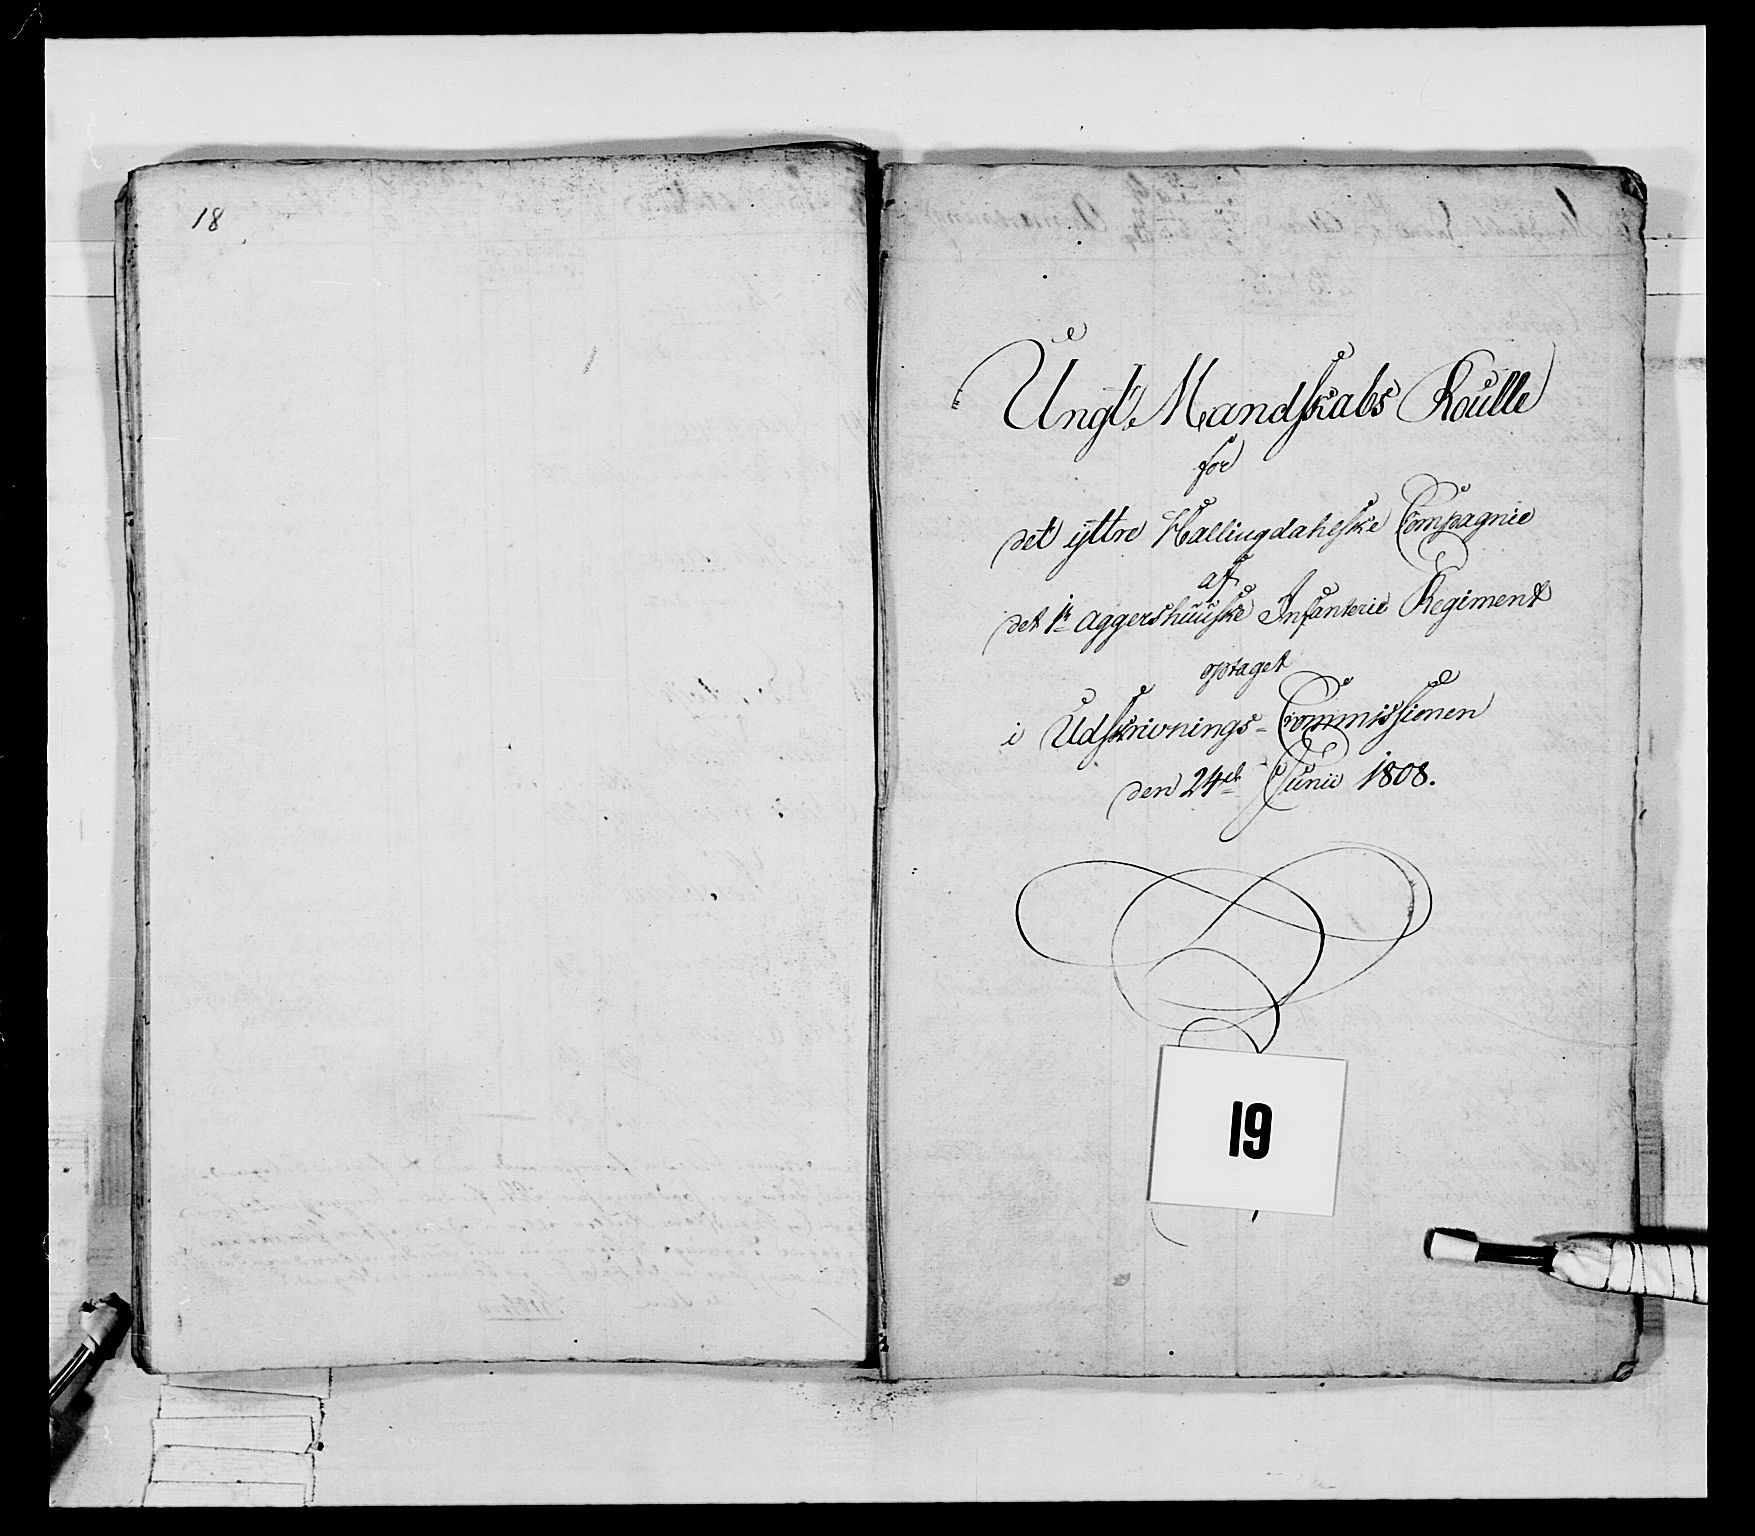 18
Ungt Mandskabs Roulle
for
det yttre Hallingdahlske Compagnie
af
det 1te Aggershuuske Infanterie Regiment
optaget
i Udskrivnings-Commissionen
den 24de Junii 1808.
19